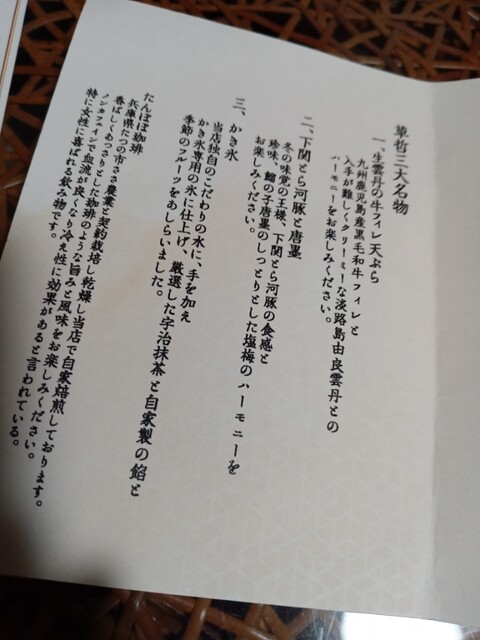 草哲三大名物
一、生雲丹の牛フィレ天ぷら
九州鹿児島産黒毛和牛フィレと
入手が難しくクリーミーな淡路島由良雲丹との
ハーモニーをお楽しみください。
二、下関とら河豚と唐墨
冬の味覚の王様、下関とら河豚の食感と
珍味、鯔の子唐墨のしっとりとした塩梅のハーモニーを
お楽しみください。
三、かき氷
当店独自のこだわりの氷に、手を加え
かき氷専用の氷に仕上げ、厳選した宇治抹茶と自家製の餡と
季節のフルーツをあしらいました。
たんぽぽ珈琲
兵庫県たつの市ささ農業と契約栽培し乾燥し当店で自家焙煎しております。
香ばしくあっさりとした珈琲のような旨みと風味をお楽しみください。
ノンカフェインで血流が良くなり冷え性に効果があると言われている。
特に女性に喜ばれる飲み物です。